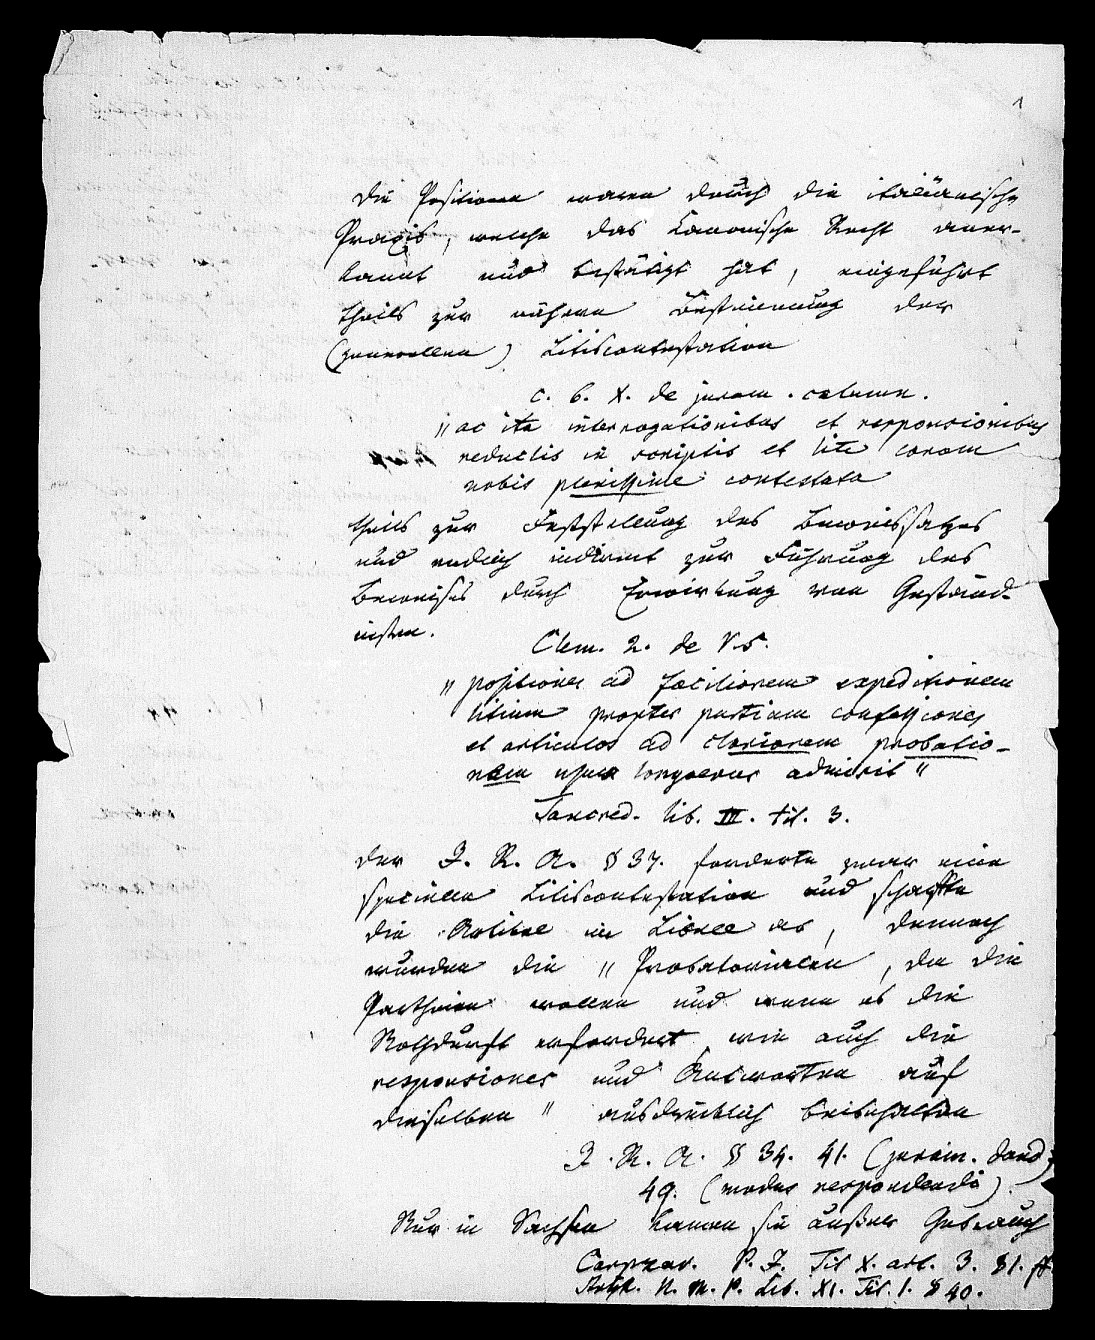 1
Die Positionen waren durch die italiänische
Praxis, welche das Kanonische Recht aner-
kannt und bestätigt hat, eingeführt
theils zur nähern Bestimmung der
(generellen) Litiscontestation
c. 6. X. de juram. calumn.
"ac ita interrogationibus et responsionibus
redactis in scriptis et lite coram
nobis plenissime contestata
theils zur Feststellung des Beweissatzes
und endlich indirect zur Führung des
Beweises durch Erwirkung von Geständ-
nissen.
Clem. 2. de V. S.
"positiones ad faciliorem expeditionem
litium propter partium confessiones
et articulos ad clariorem probatio-
nem usus longaevus admisit"
Tancred. lib. III. tit. 3.
Der J. R. A. § 37. forderte zwar eine
specielle Litiscontestation und schaffte
die Artikel im Libell ab, dennoch
wurden die "Probatorialen, da die
Partheien wollen und wenn es die
Nothdurft erfordert wie auch die
responsiones und Antworten auf
dieselben" ausdrücklich beibehalten
J. R. A. §§ 34. 41. (juram. dand.)
49. (modus respondendi).
Nur in Sachsen kamen sie außer Gebrauch
Carpzov. P. J. Tit X. art. 3. § 1. ff.
N. M. P. Lib. XI. Tit. 1. § 40.